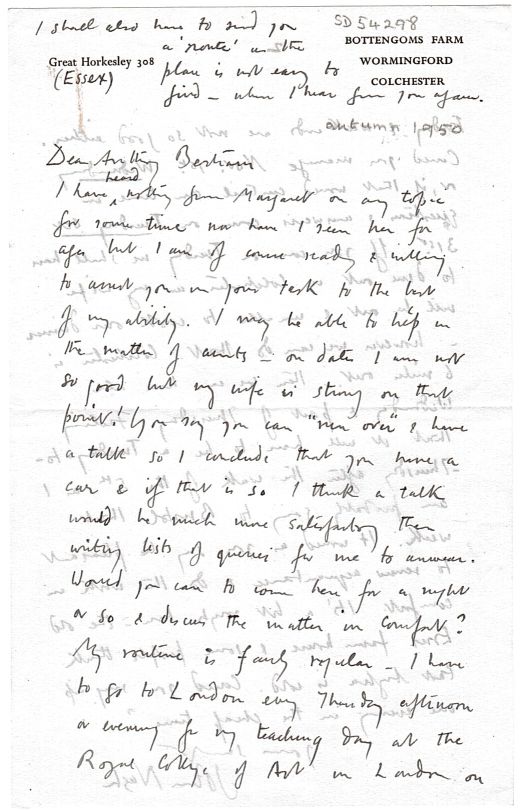 I shall also have to send you
a 'route' as the
place is not easy to
find – when I hear from you again.
SD 54298
BOTTENGOMS FARM
WORMINGFORD
COLCHESTER
Great Horkesley 308
(Essex)
autumn 1950
Dear Anthony Bertram
I have heard nothing from Margaret on any topic
for some time nor have I seen her for
ages but I am of course ready & willing
to assist you in your task to the best
of my ability. I may be able to help in
the matter of aunts – on dates I am not
so good but my wife is strong on that
point! You say you can "run over" & have
a talk so I conclude that you have a
car & if that is so I think a talk
would be much more satisfactory than
writing lists of queries for me to answer.
Would you care to come here for a night
or so & discuss the matter in comfort?
My routine is fairly regular – I have
to go to London every Thursday afternoon
or evening for my teaching day at the
Royal College of Art in London on